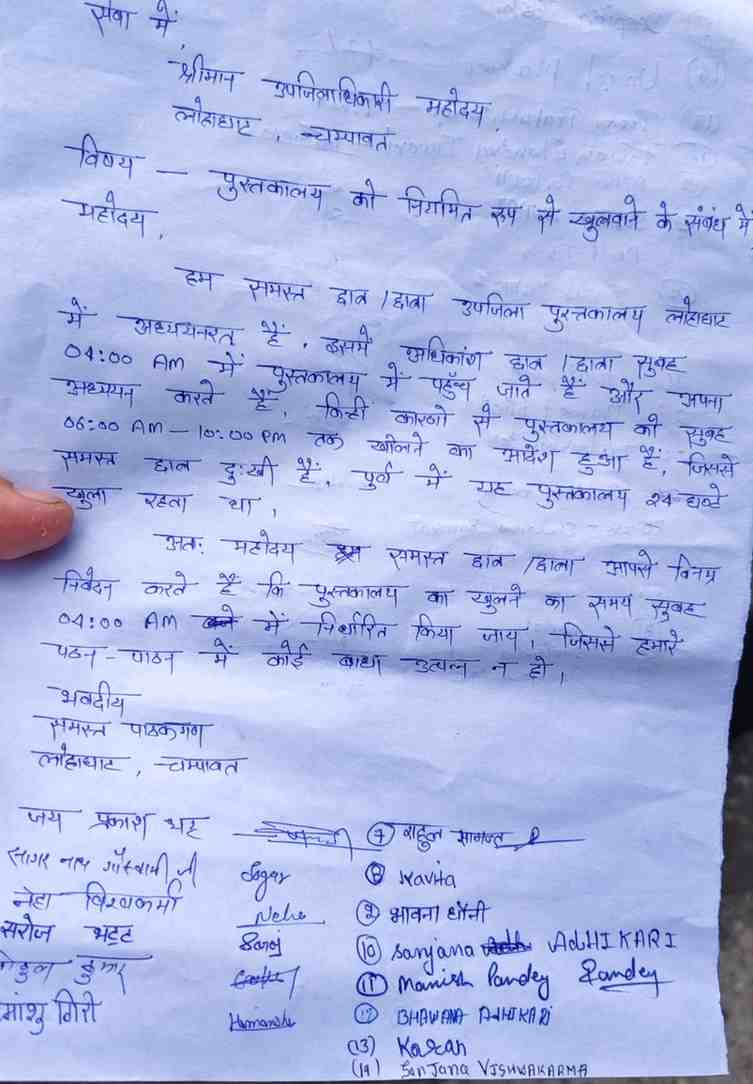 सेवा में,
श्रीमान उपजिलाधिकारी महोदय,
लोहाघाट, चम्पावत
विषय – पुस्तकालय को नियमित रूप से खुलवाने के संबंध में
महोदय,
हम समस्त छात्र/छात्रा उपजिला पुस्तकालय लोहाघाट
में अध्ययनरत हैं, इसमें अधिकांश छात्र/छात्रा सुबह
04:00 AM में पुस्तकालय में पहुँच जाते हैं और अपना
अध्ययन करते हैं, किन्ही कारणो से पुस्तकालय को सुबह
06:00 AM – 10:00 PM तक खोलने का आदेश हुआ है, जिससे
समस्त छात्र दुःखी हैं, पूर्व में यह पुस्तकालय 24 घण्टे
खुला रहता था,
अतः महोदय समस्त छात्र/छात्रा आपसे विनम्र
निवेदन करते है कि पुस्तकालय का खुलने का समय सुबह
04:00 AM में निर्धारित किया जाय, जिससे हमारे
पठन-पाठन में कोई बाधा उत्पन्न न हो,
भवदीय
समस्त पाठकगण
लोहाघाट, चम्पावत
जय प्रकाश भट्ट
सागर नाथ गोस्वामी जी Sagar
नेहा विश्वकर्मा Neha
सरोज भट्ट Saroj
कुमार
मांशु गिरी Himanshu
(7) राहुल सामन्त
(8) Kavita
(9) भावना धौनी
(10) Sanjana AdHIKARI
(11) Manish Pandey Pandey
(12) BHAWANA ADHIKARI
(13) Karan
(14) Sanjana VISHWAKARMA